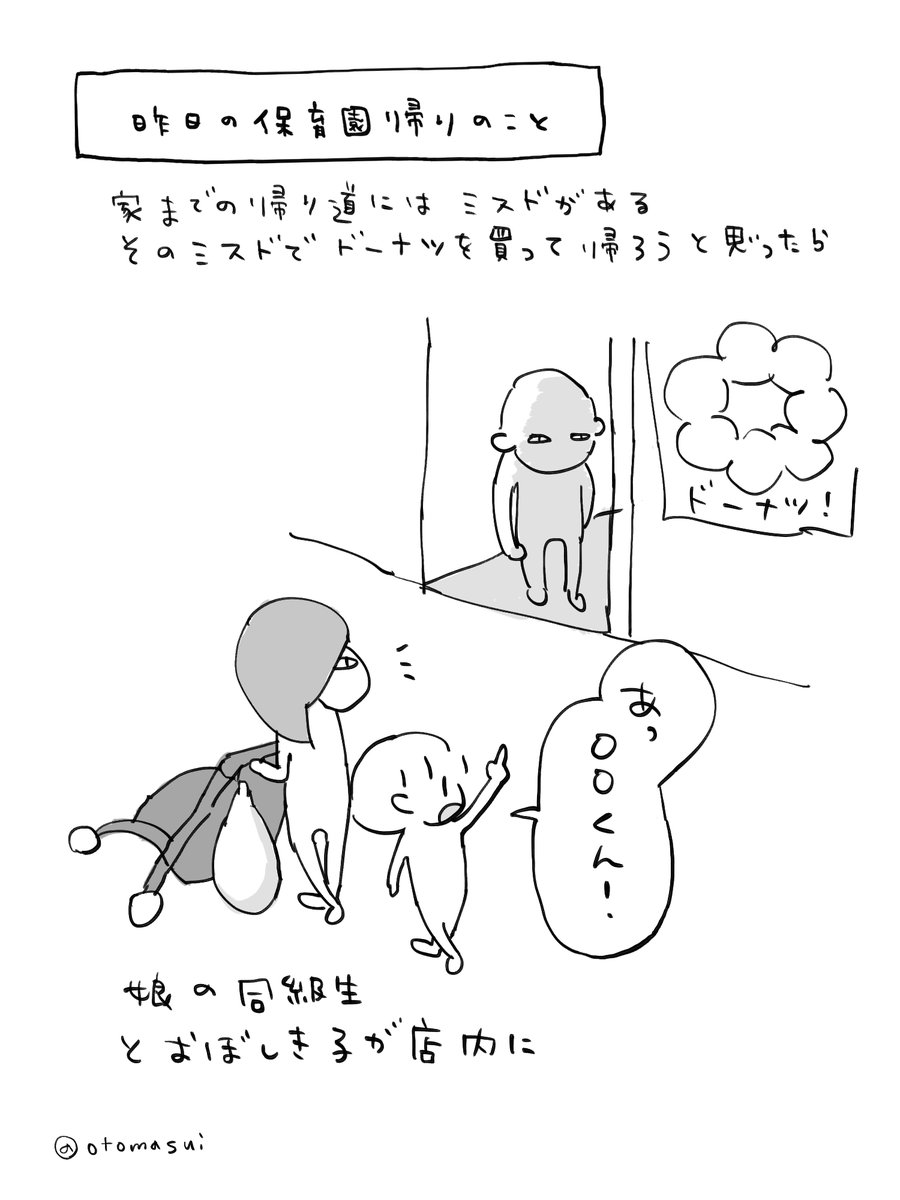 昨日の保育園帰りのこと
家までの帰り道には ミスドがある
そのミスドで ドーナツを買って帰ろうと思ったら
ドーナツ！
あっ
〇〇くん！
娘の同級生
とおぼしき子が店内に
@otomasui